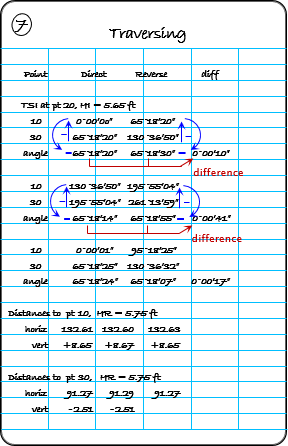 7
Traversing
Point Direct Reverse diff
TSI at pt 20, HI = 5.65 ft
10 0°00'00" 65°18'20"
30 65°18'20" 130°36'50"
angle 65°18'20" 65°18'30" 0°00'10"
difference
10 130°36'50" 195°55'04"
30 195°55'04" 261°13'59"
angle 65°18'14" 65°18'55" 0°00'41"
difference
10 0°00'01" 95°18'25"
30 65°18'25" 130°36'32"
angle 65°18'24" 65°18'07" 0°00'17"
Distances to pt 10, HR = 5.75 ft
horiz 132.61 132.60 132.63
vert +8.65 +8.67 +8.65
Distances to pt 30, HR = 5.75 ft
horiz 91.27 91.29 91.27
vert -2.51 -2.51